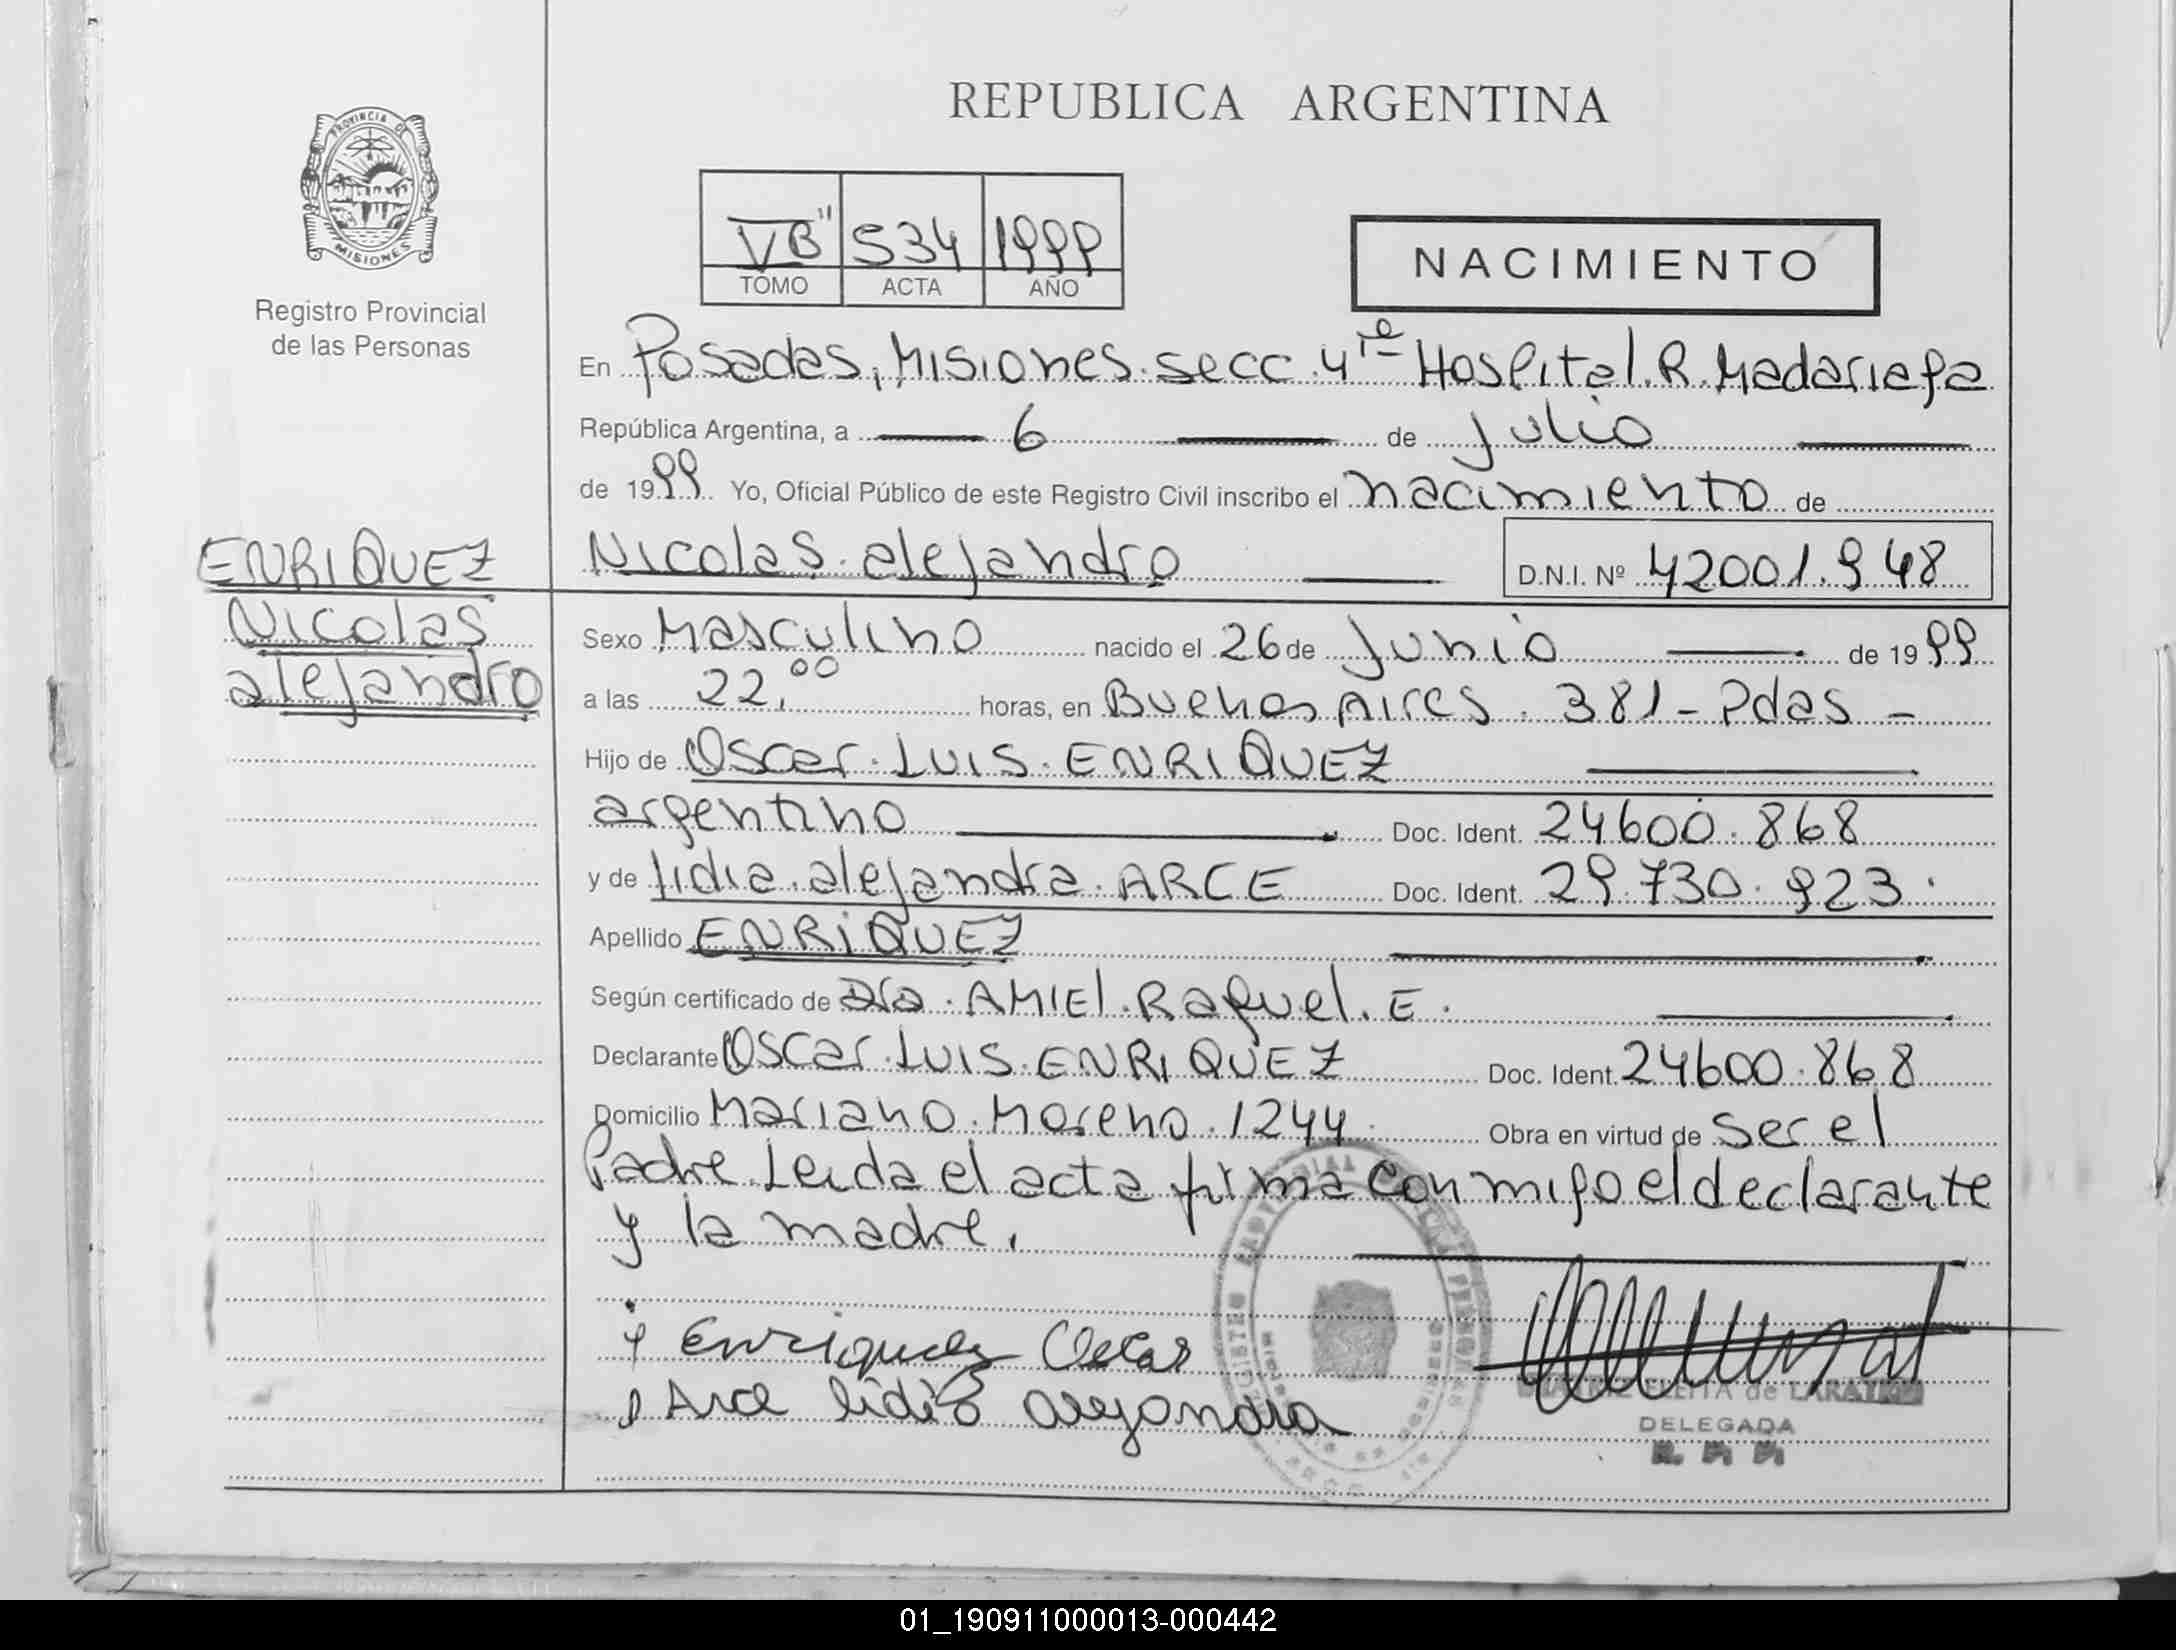 REPUBLICA ARGENTINA
PROVINCIA DE
MISIONES
Registro Provincial
de las Personas
VB" 534 1999
TOMO ACTA AÑO
NACIMIENTO
En Posadas, Misiones. secc. 4ta Hospital. R. Madariaga
República Argentina, a 6 de Julio
de 1999 Yo, Oficial Público de este Registro Civil inscribo el nacimiento de
ENRIQUEZ
Nicolas
alejandro
Nicolas. alejandro D.N.I. Nº 42001.948
Sexo Masculino nacido el 26 de Junio de 1999
a las 22,00 horas, en Buenos Aires. 381 - Pdas -
Hijo de Oscar. Luis. ENRIQUEZ
argentino Doc. Ident. 24600.868
y de lidia. alejandra. ARCE Doc. Ident. 29.730.923.
Apellido ENRIQUEZ
Según certificado de Dra. AMIEl. Raquel. E.
Declarante Oscar. Luis. ENRIQUEZ Doc. Ident. 24600.868
Domicilio Mariano. Moreno. 1244. Obra en virtud de ser el
Padre. Leida el acta firma conmigo el declarante
y la madre.
Enriquez Oscar
Arce lidia alejandra
DELEGADA
R. P. P.
01_190911000013-000442